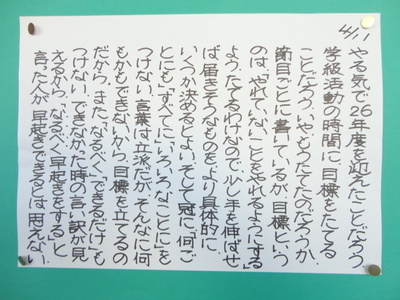 4/11
やる気で26年度を迎えたことだろう
学級活動の時間に、目標をたてる
ことだろう。いや、もうたてたのだろうか、
節目ごとに書いているが、目標という
のは、やれていないことをやれるようにする
よう、たてるわけなので、少し手を伸ばせ
ば、届きそうなものをより具体的に
いくつか決めるとよい。そして冠に、「何ご
とにも」「すべてに」「いろいろなことに」を
つけない。言葉は立派だが、そんなに何
もかもできないから、目標を立てるの
だから。また、「なるべく」「できるだけ」も
つけない。できなかった時の言い訳が見
えるから。「なるべく早起きをする」と
言った人が、早起きできるとは思えない